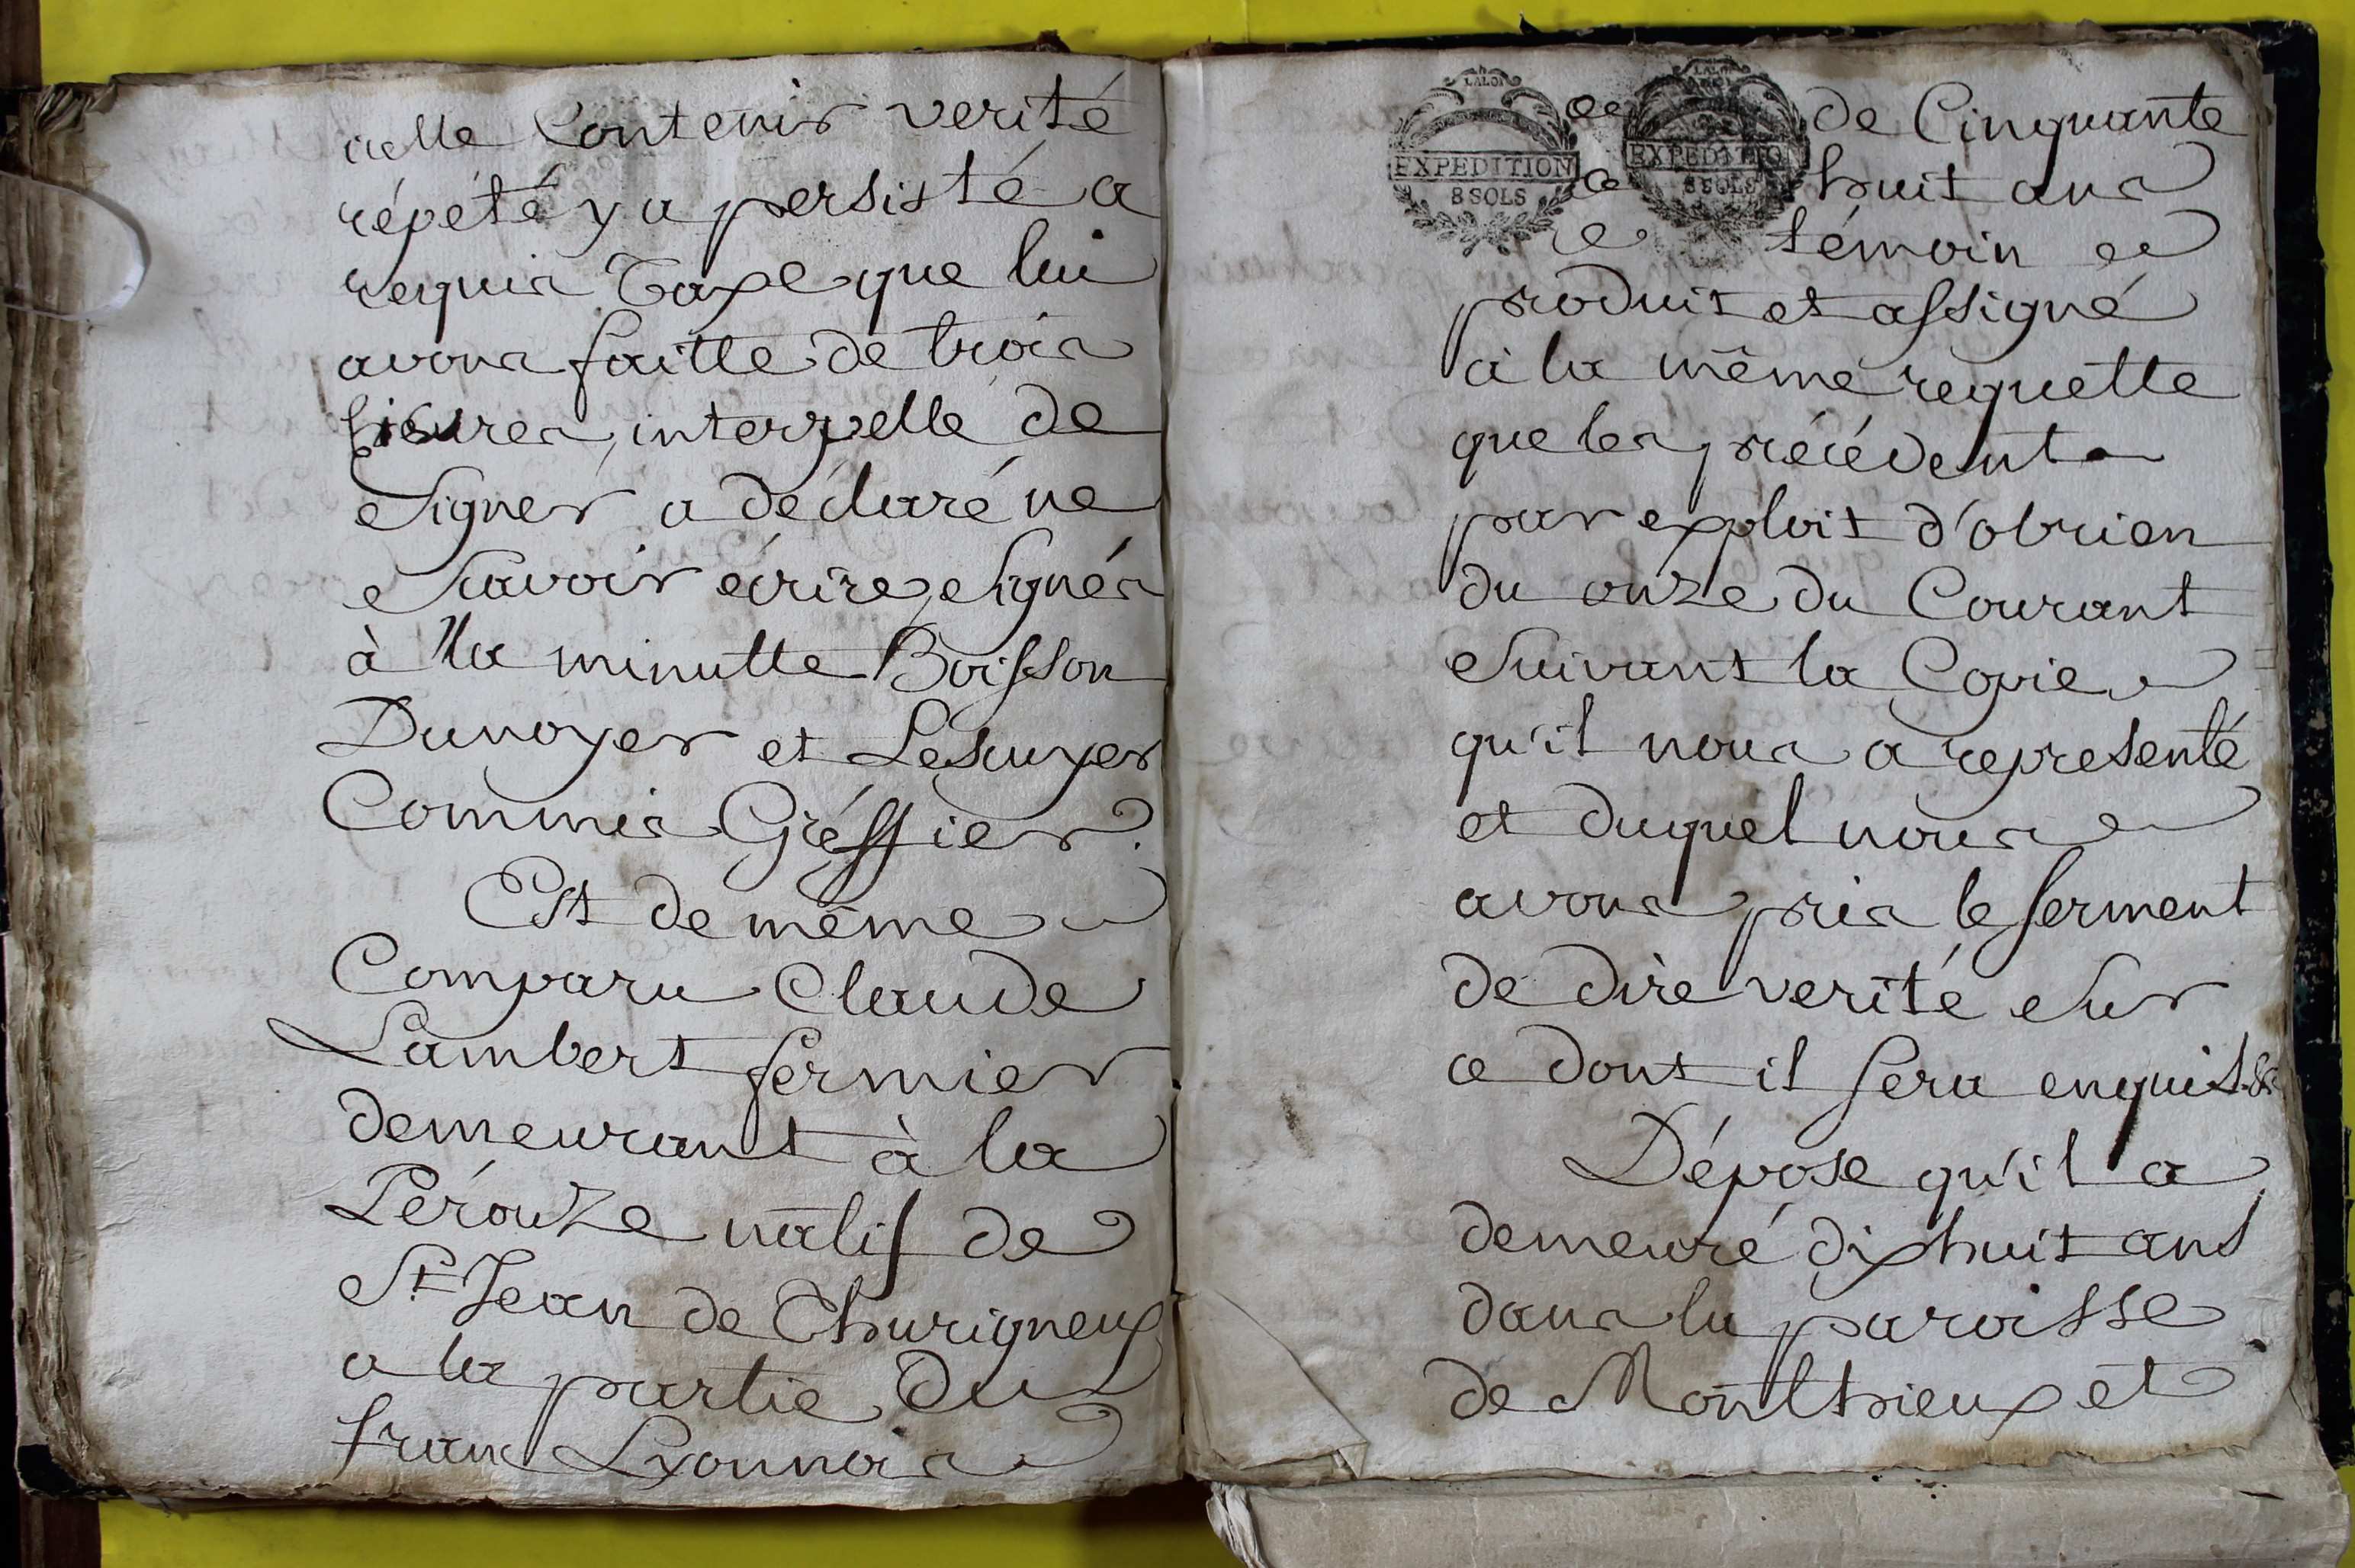 icelle Contenir verité
répété y a persisté a
requis Taxe que lui
avons faitte de trois
livres, interpelle de
signer a déclaré ne
scavoir écrire, signés
à la minutte Boisson
Dunoyer et Lescuyer
Commis Gréffier.
Est de même
Comparu Claude
Lambert fermier
demeurant à la
Pérouze natif de
St. Jean de Thurigneux
a la partie du
franc Lyonnois
LALON
EXPEDITION
8 SOLS
EXPEDITION
8 SOLS
de Cinquante
huit ans
témoin
produit et assigné
à la même requette
que les précédents
par exploit d'obrien
du onze du Courant
suivant la Copie
qu'il nous a representé
et duquel nous
avons pris le serment
de dire verité sur
ce dont il sera enquis &
Dépose qu'il a
demeuré dix huit ans
dans la paroisse
de Monthieux et